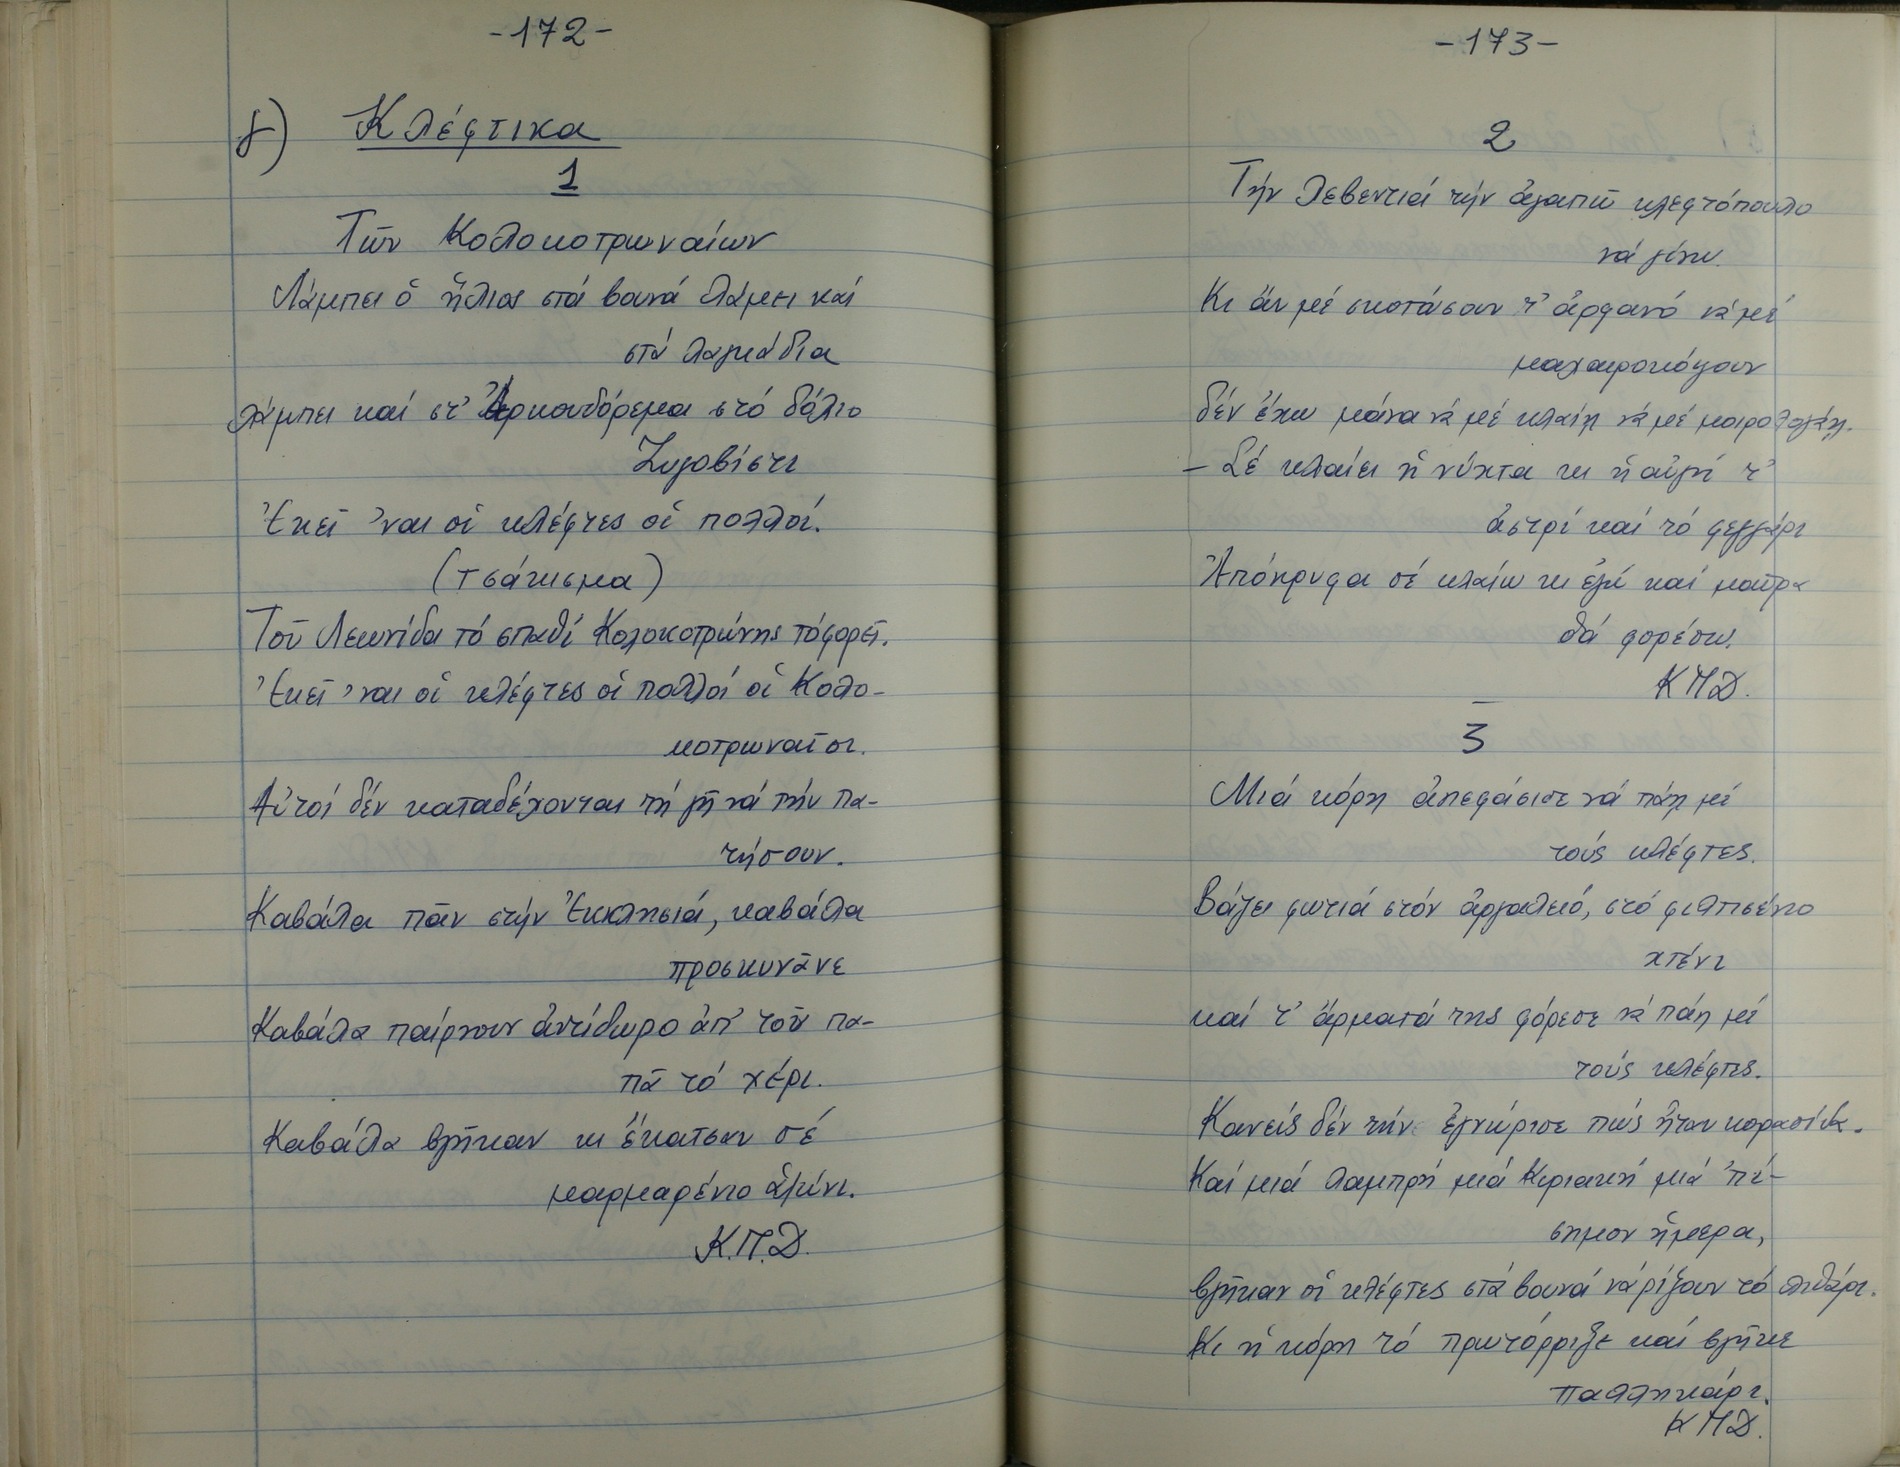 -172-
γ) Κλέφτικα
1
Τῶν Κολοκοτρωναίων
Λάμπει ὁ ἥλιος στά βουνά λάμπει καί
στά λαγκάδια
λάμπει καί στ' Ἀρκουδόρεμα στό δόλιο
Ζυγοβίστι
Ἐκεῖ 'ναι οἱ κλέφτες οἱ πολλοί.
(τσάκισμα)
Τοῦ Λεωνίδα τό σπαθί Κολοκοτρώνης τόφορεῖ.
Ἐκεῖ 'ναι οἱ κλέφτες οἱ πολλοί οἱ Κολο-
κοτρωναῖοι.
Αὐτοί δέν καταδέχονται τή γῆ νά τήν πα-
τήσουν.
Καβάλα πᾶν στήν Ἐκκλησιά, καβάλα
προσκυνᾶνε
Καβάλα παίρνουν ἀντίδωρο ἀπ' τοῦ πα-
πᾶ τό χέρι.
Καβάλα βγῆκαν κι ἔκατσαν σέ
μαρμαρένιο ἁλώνι.
Κ.Π.Δ.
-173-
2
Τήν λεβεντιά τήν ἀγαπῶ κλεφτόπουλο
νά γίνω.
Κι ἄν μέ σκοτώσουν τ' ὀρφανό νά μέ
μαχαιροκόψουν
δέν ἔχω μάνα νά μέ κλαίη νά μέ μοιρολογάη.
- Σέ κλαίει ἡ νύχτα κι ἡ αὐγή τ'
ἀστρί καί τό φεγγάρι
Ἀπόκρυφα σέ κλαίω κι ἐγώ καί μαῦρα
θά φορέσω.
ΚΠΔ.
3
Μιά κόρη ἀπεφάσισε νά πάη μέ
τούς κλέφτες.
Βάζει φωτιά στόν ἀργαλειό, στό φιλτισένιο
χτένι
καί τ' ἄρματά της φόρεσε νά πάη μέ
τούς κλέφτες.
Κανείς δέν τήν ἐγνώρισε πώς ἦταν κορασίδα.
Καί μιά λαμπρή μιά Κυριακή μιά 'πί-
σημον ἡμερα,
βγῆκαν οἱ κλέφτες στά βουνά νά ρίξουν τό λιθάρι.
Κι ἡ κόρη τό πρωτόρριξε καί βγῆκε
παλληκάρι.
ΚΠΔ.